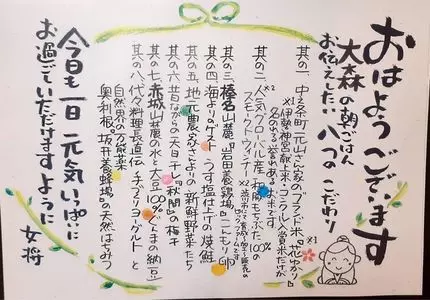 おはようございます
大森の朝ごはん
お伝えしたい八つのこだわり
其の一、中之条町 元山さん家のブランド米『花ゆかり』※1
※1 伊勢神宮献上米・コンクール入賞米だけが
名のれる誉れあるお米です
其の二、人気グローバル産 もち豚100%の
スモークウィンナー
其の三、榛名山麓『岩田養鶏場』こんもり卵
其の四、海よりのゲスト うす塩仕上の焼鮭
其の五、地元農家さんよりの新鮮野菜たち
其の六、昔ながらの天日干し『秋間』の梅干
其の七、赤城山麓の水と大豆100%ぐんまの納豆
其の八、代々料理長直伝 手づくりヨーグルトと
自然界の万能薬
奥利根、坂井養蜂場の天然はちみつ
今日も一日元気いっぱいに
お過ごしていただけますように
女将